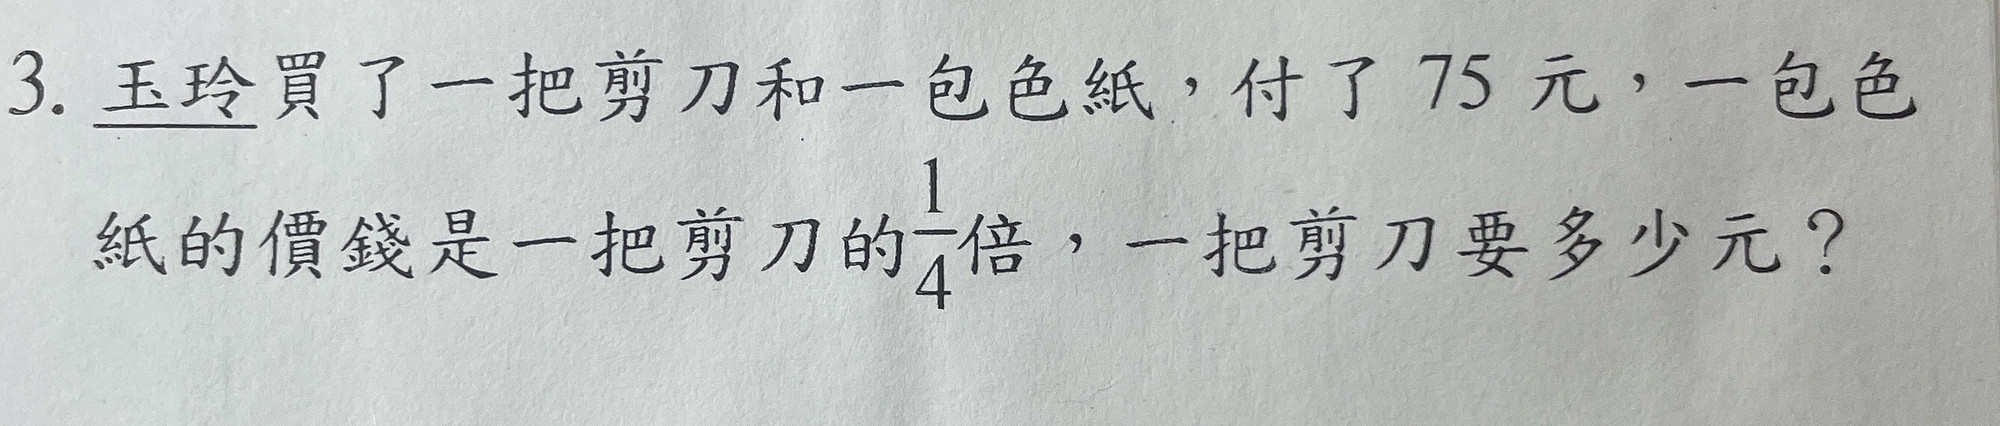 3. 玉玲買了一把剪刀和一包色紙，付了 75 元，一包色
紙的價錢是一把剪刀的1/4倍，一把剪刀要多少元？